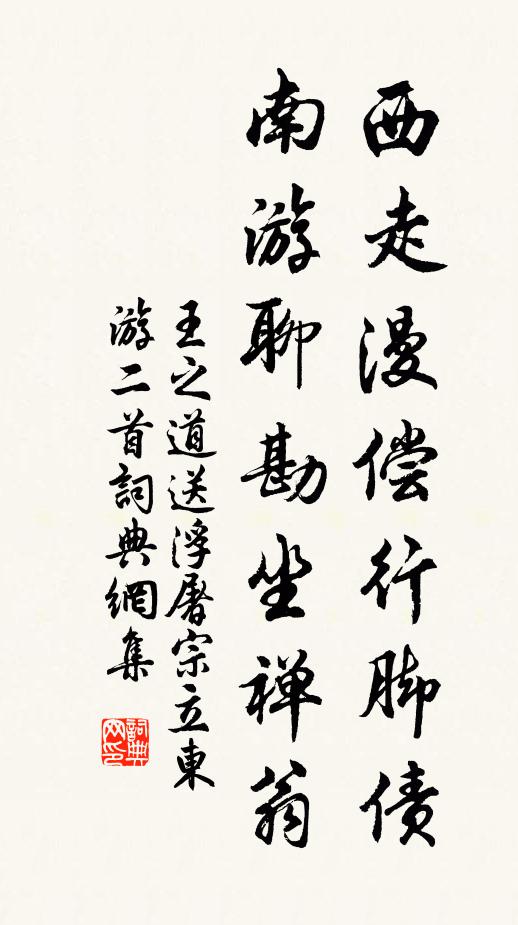 西走漫偿行脚债
南游聊勘坐禅翁
王之道送浮屠宗立東
游二首詞典網集
詞典
网印